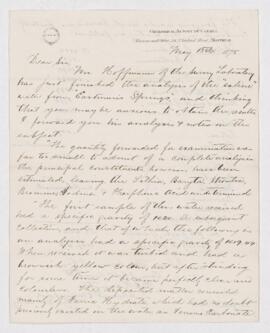 GEOLOGICAL SURVEY OF CANADA
May 18th 1875
Dear Sir
Mr Hoffmann of the Survey Laboratory
has just finished the analysis of the "saline"
water from Springs, and thinking
that you may be anxious to obtain the results
I forward you his analysis & notes on the
subject.
"The quantity forwarded for examination was
far too small to admit of a complete analysis
the principal constituents however have been
estimated leaving the
Bromine Iodine & Acid undetermined
The first sample of this water received
had a specific gravity of A subsequent
collection, and that of which the following is
an analysis had a specific gravity of
When received it was turbid and had a
brownish yellow colour, but after standing
for some time it became perfectly clear and
colourless. The deposited matter consisted
mainly of Ferric Hydrate which had no doubt
previously existed in the water as Ferrous Carbonate